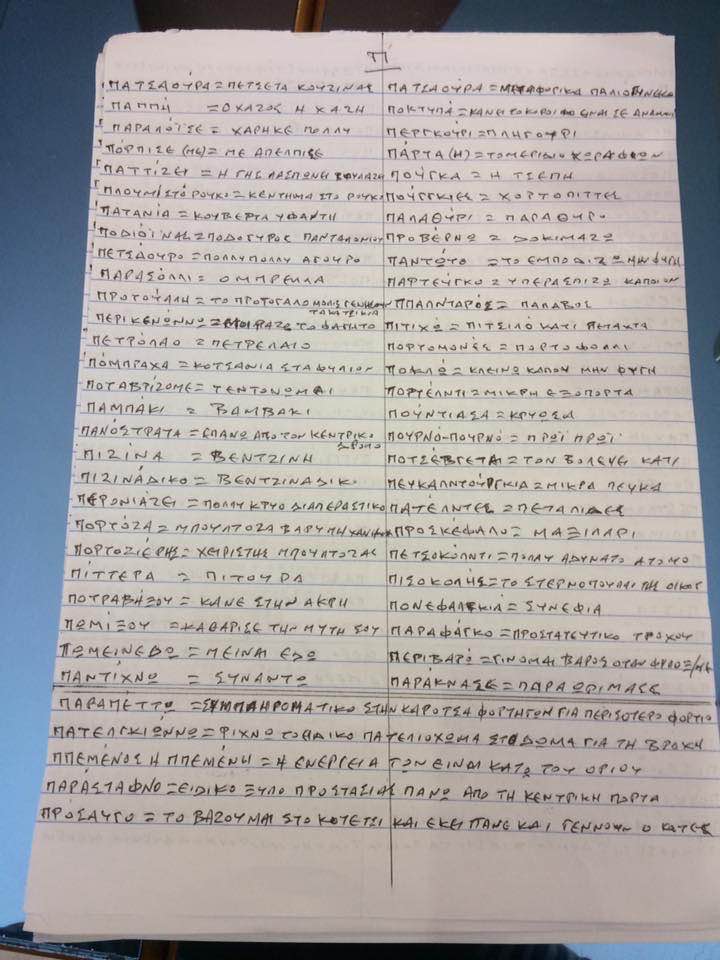 Π
ΠΑΤΣΑΟΥΡΑ = ΠΕΤΣΕΤΑ ΚΟΥΖΙΝΑΣ
ΠΑΠΠΗ = Ο ΧΑΖΟΣ Η ΧΑΖΗ
ΠΑΡΑΛΟΪΣΕ = ΧΑΡΗΚΕ ΠΟΛΛΥ
ΠΟΡΠΙΣΕ (ΜΕ) = ΜΕ ΑΠΕΛΠΙΣΕ
ΠΑΤΤΙΖΕΙ = Η ΓΗΣ ΛΑΣΠΩΝΕΙ
ΠΛΟΥΜΙ ΣΤΟ ΡΟΥΚΟ = ΚΕΝΤΗΜΑ ΣΤΟ ΡΟΥΚΟ
ΠΑΤΑΝΙΑ = ΚΟΥΒΕΡΤΑ ΥΦΑΝΤΗ
ΠΟΔΙΟΪΝΑΣ = ΠΟΔΟΓΥΡΟΣ ΠΑΝΤΑΛΟΝΙΟΥ
ΠΕΤΣΔΟΥΡΟ = ΠΟΛΛΥ ΠΟΛΛΥ ΑΓΟΥΡΟ
ΠΑΡΑΣΟΛΛΙ = ΟΜΠΡΕΛΛΑ
ΠΡΟΤΟΥΑΛΗ = ΤΟ ΠΡΟΤΟΓΑΛΟ ΜΟΛΙΣ ΓΕΝΗΣΟΥΝ ΤΑ ΚΑΤΡΙΚΙΑ
ΠΕΡΙΚΕΝΩΝΝΩ = ΜΟΙΡΑΖΩ ΤΟ ΦΑΓΗΤΟ
ΠΕΤΡΟΛΑΟ = ΠΕΤΡΕΛΑΙΟ
ΠΟΜΠΡΑΧΑ = ΚΟΤΣΑΝΙΑ ΣΤΑ ΦΥΛΛΟΝ
ΠΟΤΑΒΡΙΖΟΜΕ = ΤΕΝΤΟΝΩΜΑΙ
ΠΑΜΠΑΚΙ = ΒΑΜΒΑΚΙ
ΠΑΝΟΣΤΡΑΤΑ = ΕΠΑΝΩ ΑΠΟ ΤΟΝ ΚΕΝΤΡΙΚΟ ΔΡΟΜΟ
ΠΙΖΙΝΑ = ΒΕΝΤΖΙΝΗ
ΠΙΖΙΝΑΔΙΚΟ = ΒΕΝΤΖΙΝΑΔΙΚΟ
ΠΕΡΟΝΙΑΖΕΙ = ΠΟΛΛΥ ΚΡΥΟ ΔΙΑΠΕΡΑΣΤΙΚΟ
ΠΟΡΤΟΖΑ = ΜΠΟΥΛΤΟΖΑ ΒΑΡΥ
ΠΟΡΤΟΖΙΕΡΗΣ = ΧΕΙΡΙΣΤΗΣ ΜΠΟΥΛΤΟΖΑΣ
ΠΙΤΤΕΡΑ = ΠΙΤΟΥΡΑ
ΠΟΤΡΑΒΗΞΟΥ = ΚΑΝΕ ΣΤΗΝ ΑΚΡΗ
ΠΩΜΙΞΟΥ = ΚΑΘΑΡΙΣΕ ΤΗΝ ΜΥΤΗ ΣΟΥ
ΠΩΜΕΙΝΕ ΕΔΩ = ΜΕΙΝΑΙ ΕΔΩ
ΠΑΝΤΙΧΝΩ = ΣΥΝΑΝΤΩ
ΠΑΤΣΑΟΥΡΑ = ΜΕΤΑΦΟΡΙΚΑ ΠΑΛΙΟΓΥΝΕΚΟ
ΠΟΚΤΥΠΑ = ΚΑΝΕΙ
ΠΕΡΓΚΟΥΡΙ = ΠΛΗΓΟΥΡΙ
ΠΑΡΤΑ (Η) = ΤΟ ΜΕΡΙΔΙΟ ΧΩΡΑΦΙΩΝ
ΠΟΥΓΚΑ = Η ΤΣΕΠΗ
ΠΟΥΡΓΚΙΕΣ = ΧΟΡΤΟΠΙΤΤΕΣ
ΠΑΛΑΘΥΡΙ = ΠΑΡΑΘΥΡΟ
ΠΡΟΒΕΡΝΩ = ΔΟΚΙΜΑΖΩ
ΠΑΝΤΩΤΟ = ΤΟ ΕΜΠΟΔΙΖΩ ΜΗΝ ΦΥΓΗ
ΠΑΡΤΕΥΓΚΟ = ΥΠΕΡΑΣΠΙΖΩ ΚΑΠΟΙΟΝ
ΠΠΑΛΝΤΑΡΟΣ = ΠΑΛΑΒΟΣ
ΠΙΤΙΧΩ = ΠΙΤΣΙΛΟ ΚΑΤΙ ΠΕΤΑΧΤΑ
ΠΟΡΤΟΜΟΝΕΣ = ΠΟΡΤΟΦΟΛΛΙ
ΠΟΚΛΩ = ΚΛΕΙΝΩ ΚΑΠΟΥ ΜΗΝ ΦΥΓΗ
ΠΟΡΤΕΛΝΤΙ = ΜΙΚΡΗ ΕΞΟΠΟΡΤΑ
ΠΟΥΝΤΙΑΣΑ = ΚΡΥΩΣΑ
ΠΟΥΡΝΟ-ΠΟΥΡΝΟ = ΠΡΩΪ ΠΡΩΪ
ΠΟΤΣΕΒΓΕΤΑΙ = ΤΟΝ ΒΟΛΕΥΕΙ ΚΑΤΙ
ΠΕΥΚΑΛΝΤΟΥΡΓΚΙΑ = ΜΙΚΡΑ ΠΕΥΚΑ
ΠΑΤΕΛΝΤΕΣ = ΠΕΤΑΛΙΔΕΣ
ΠΡΟΣΚΕΦΑΛΟ = ΜΑΞΙΛΛΑΡΙ
ΠΕΤΣΟΚΟΛΝΤΙ = ΠΟΛΛΥ ΑΔΥΝΑΤΟ ΑΤΟΜΟ
ΠΙΣΟΚΟΛΗΣ = ΤΟ ΣΤΕΡΝΟΠΟΥΛΙ ΤΗΣ ΟΙΚΟΓ
ΠΟΝΕΦΑΛΓΚΙΑ = ΣΥΝΕΦΙΑ
ΠΑΡΑΦΑΓΚΟ = ΠΡΟΣΤΑΤΕΥΤΙΚΟ ΤΡΟΧΟΥ
ΠΕΡΙΒΑΡΟ = ΓΙΝΟΜΑΙ ΒΑΡΟΣ ΟΤΑΝ
ΠΑΡΑΚΝΑΣΕ = ΠΑΡΑΩΡΙΜΑΣΕ
ΠΑΡΑΠΕΤΤΟ = ΣΥΜΠΛΗΡΟΜΑΤΙΚΟ ΣΤΗΝ ΚΑΡΟΤΣΑ ΦΟΡΤΗΓΩΝ ΓΙΑ ΠΕΡΙΣΟΤΕΡΟ ΦΟΡΤΙΟ
ΠΑΤΕΛΓΚΙΩΝΝΩ = ΡΙΧΝΩ ΤΟ ΕΙΔΙΚΟ ΠΑΤΕΛΙΟΧΩΜΑ ΣΤΟ ΔΩΜΑ ΓΙΑ ΤΗ ΒΡΟΧΗ
ΠΠΕΜΕΝΟΣ Η ΠΠΕΜΕΝΗ = Η ΕΝΕΡΓΕΙΑ ΤΩΝ ΕΙΝΑΙ ΚΑΤΩ ΤΟΥ ΟΡΙΟΥ
ΠΑΡΑΣΤΑΦΝΟ = ΕΙΔΙΚΟ ΞΥΛΟ ΠΡΟΣΤΑΣΙΑΣ ΠΑΝΩ ΑΠΟ ΤΗ ΚΕΝΤΡΙΚΗ ΠΟΡΤΑ
ΠΡΟΣΑΥΓΟ = ΤΟ ΒΑΖΟΥΜΑΙ ΣΤΟ ΚΟΤΕΤΣΙ ΚΑΙ ΕΚΕΙ ΠΑΝΕ ΚΑΙ ΓΕΝΝΟΥΝ Ο ΚΑΤΕΣ